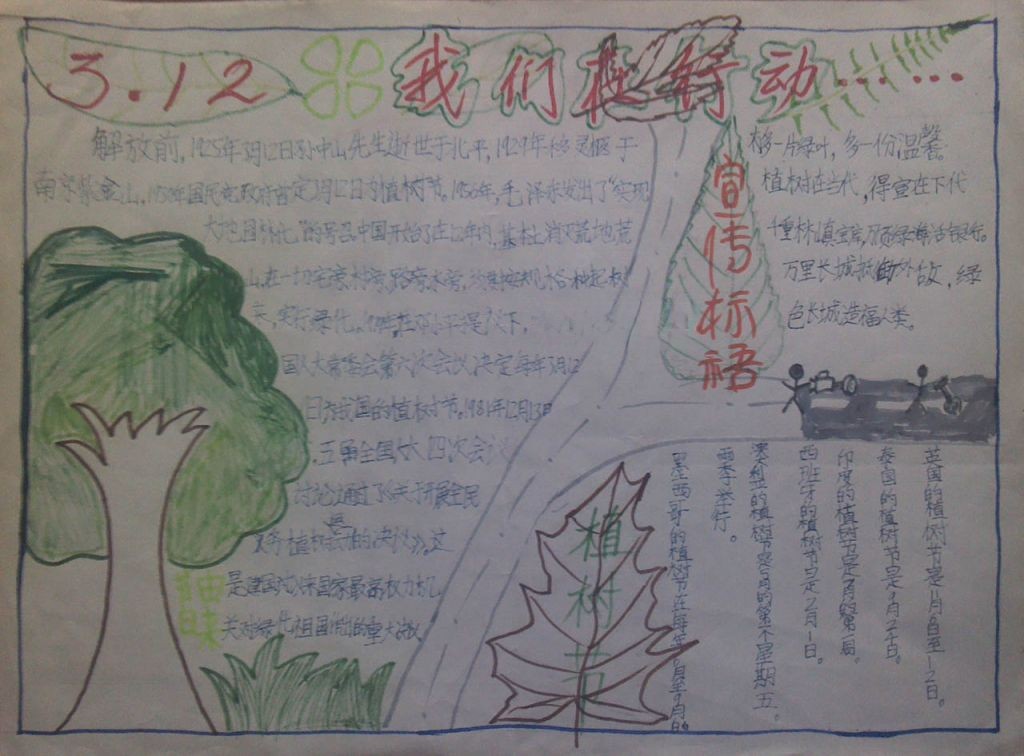 3.12 我们在行动……
解放前,1925年3月12日孙中山先生逝世于北平,1929年移灵柩于
南京紫金山,1928年国民党政府肯定3月12日为植树节。1956年,毛泽东发出了"实现
大地园林化"的号召,中国开始了在12年内,基本上消灭荒地荒
山,在一切宅旁村旁,路旁水旁,
实行绿化。
国人大常委会第六次会议决定每年3月12
日为我国的植树节。1981年12月13日
五届全国人大四次会议
讨论通过了《关于开展全民
义务植树运动的决议》。这
是建国以来国家最高权力机
关对绿化祖国作出的重大决议
由来
宣传标语
多一片绿叶,多一份温馨。
植树在当代,得宜在下代
千重林真宝库,万顷绿海活银行。
万里长城抵御外敌,绿
色长城造福人类。
植树节
英国的植树节是11月6日至12日。
泰国的植树节是9月24日。
印度的植树节是7月第一周。
西班牙的植树节是2月1日。
澳大利亚的植树节是5月的第一个星期五。
雨季举行。
墨西哥的植树节在每年6月至9月的